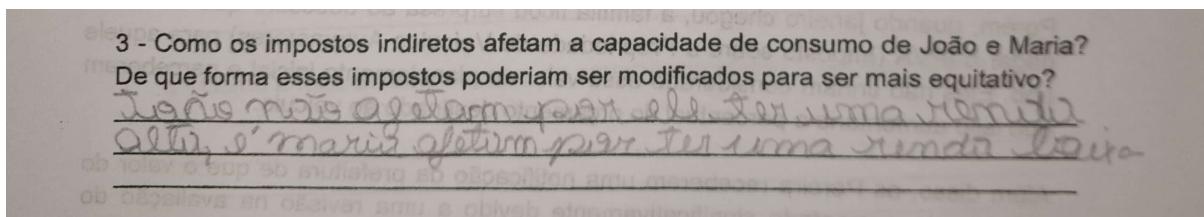 3 - Como os impostos indiretos afetam a capacidade de consumo de João e Maria?
De que forma esses impostos poderiam ser modificados para ser mais equitativo?
João não afetam por ele ter uma renda
alta, e maria afetam por ter uma renda baixa